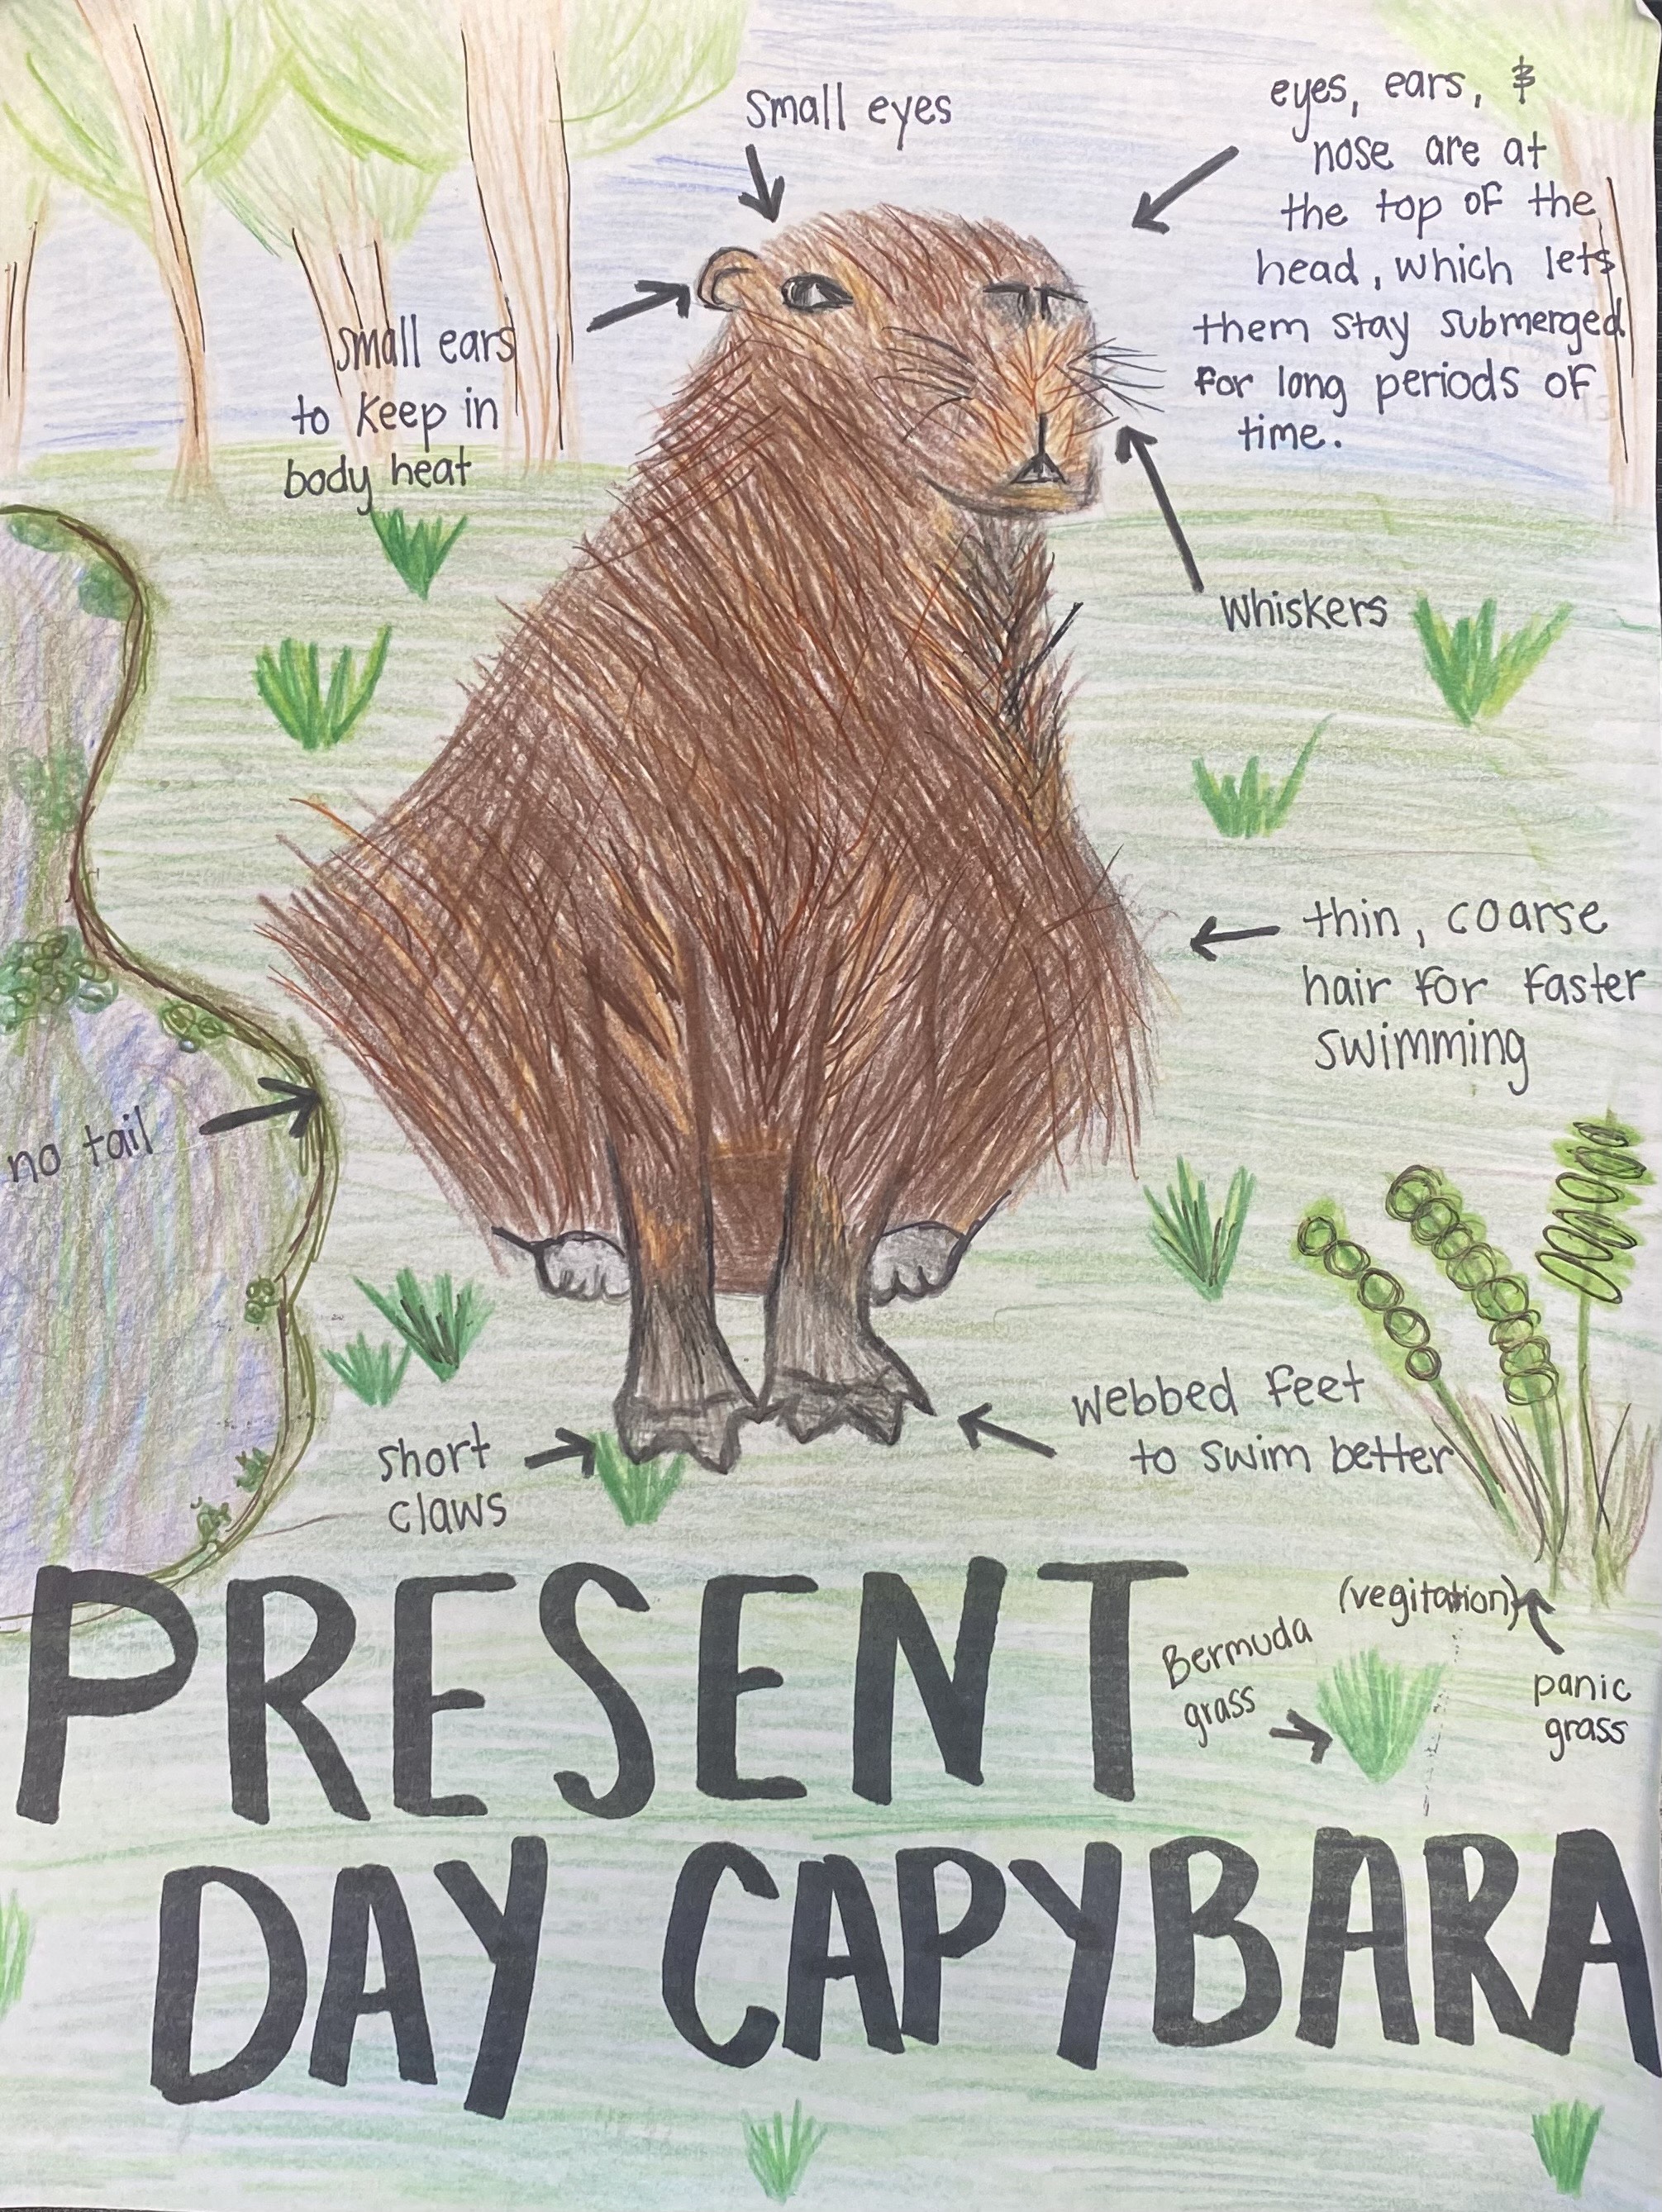 small eyes
eyes, ears, &
nose are at
the top of the
head, which lets
them stay submerged
for long periods of
time.
small ears
to keep in
body heat
whiskers
thin, coarse
hair for faster
swimming
no tail
webbed feet
to swim better
short
claws
(vegitation)
Bermuda
grass
panic
grass
PRESENT
DAY CAPYBARA